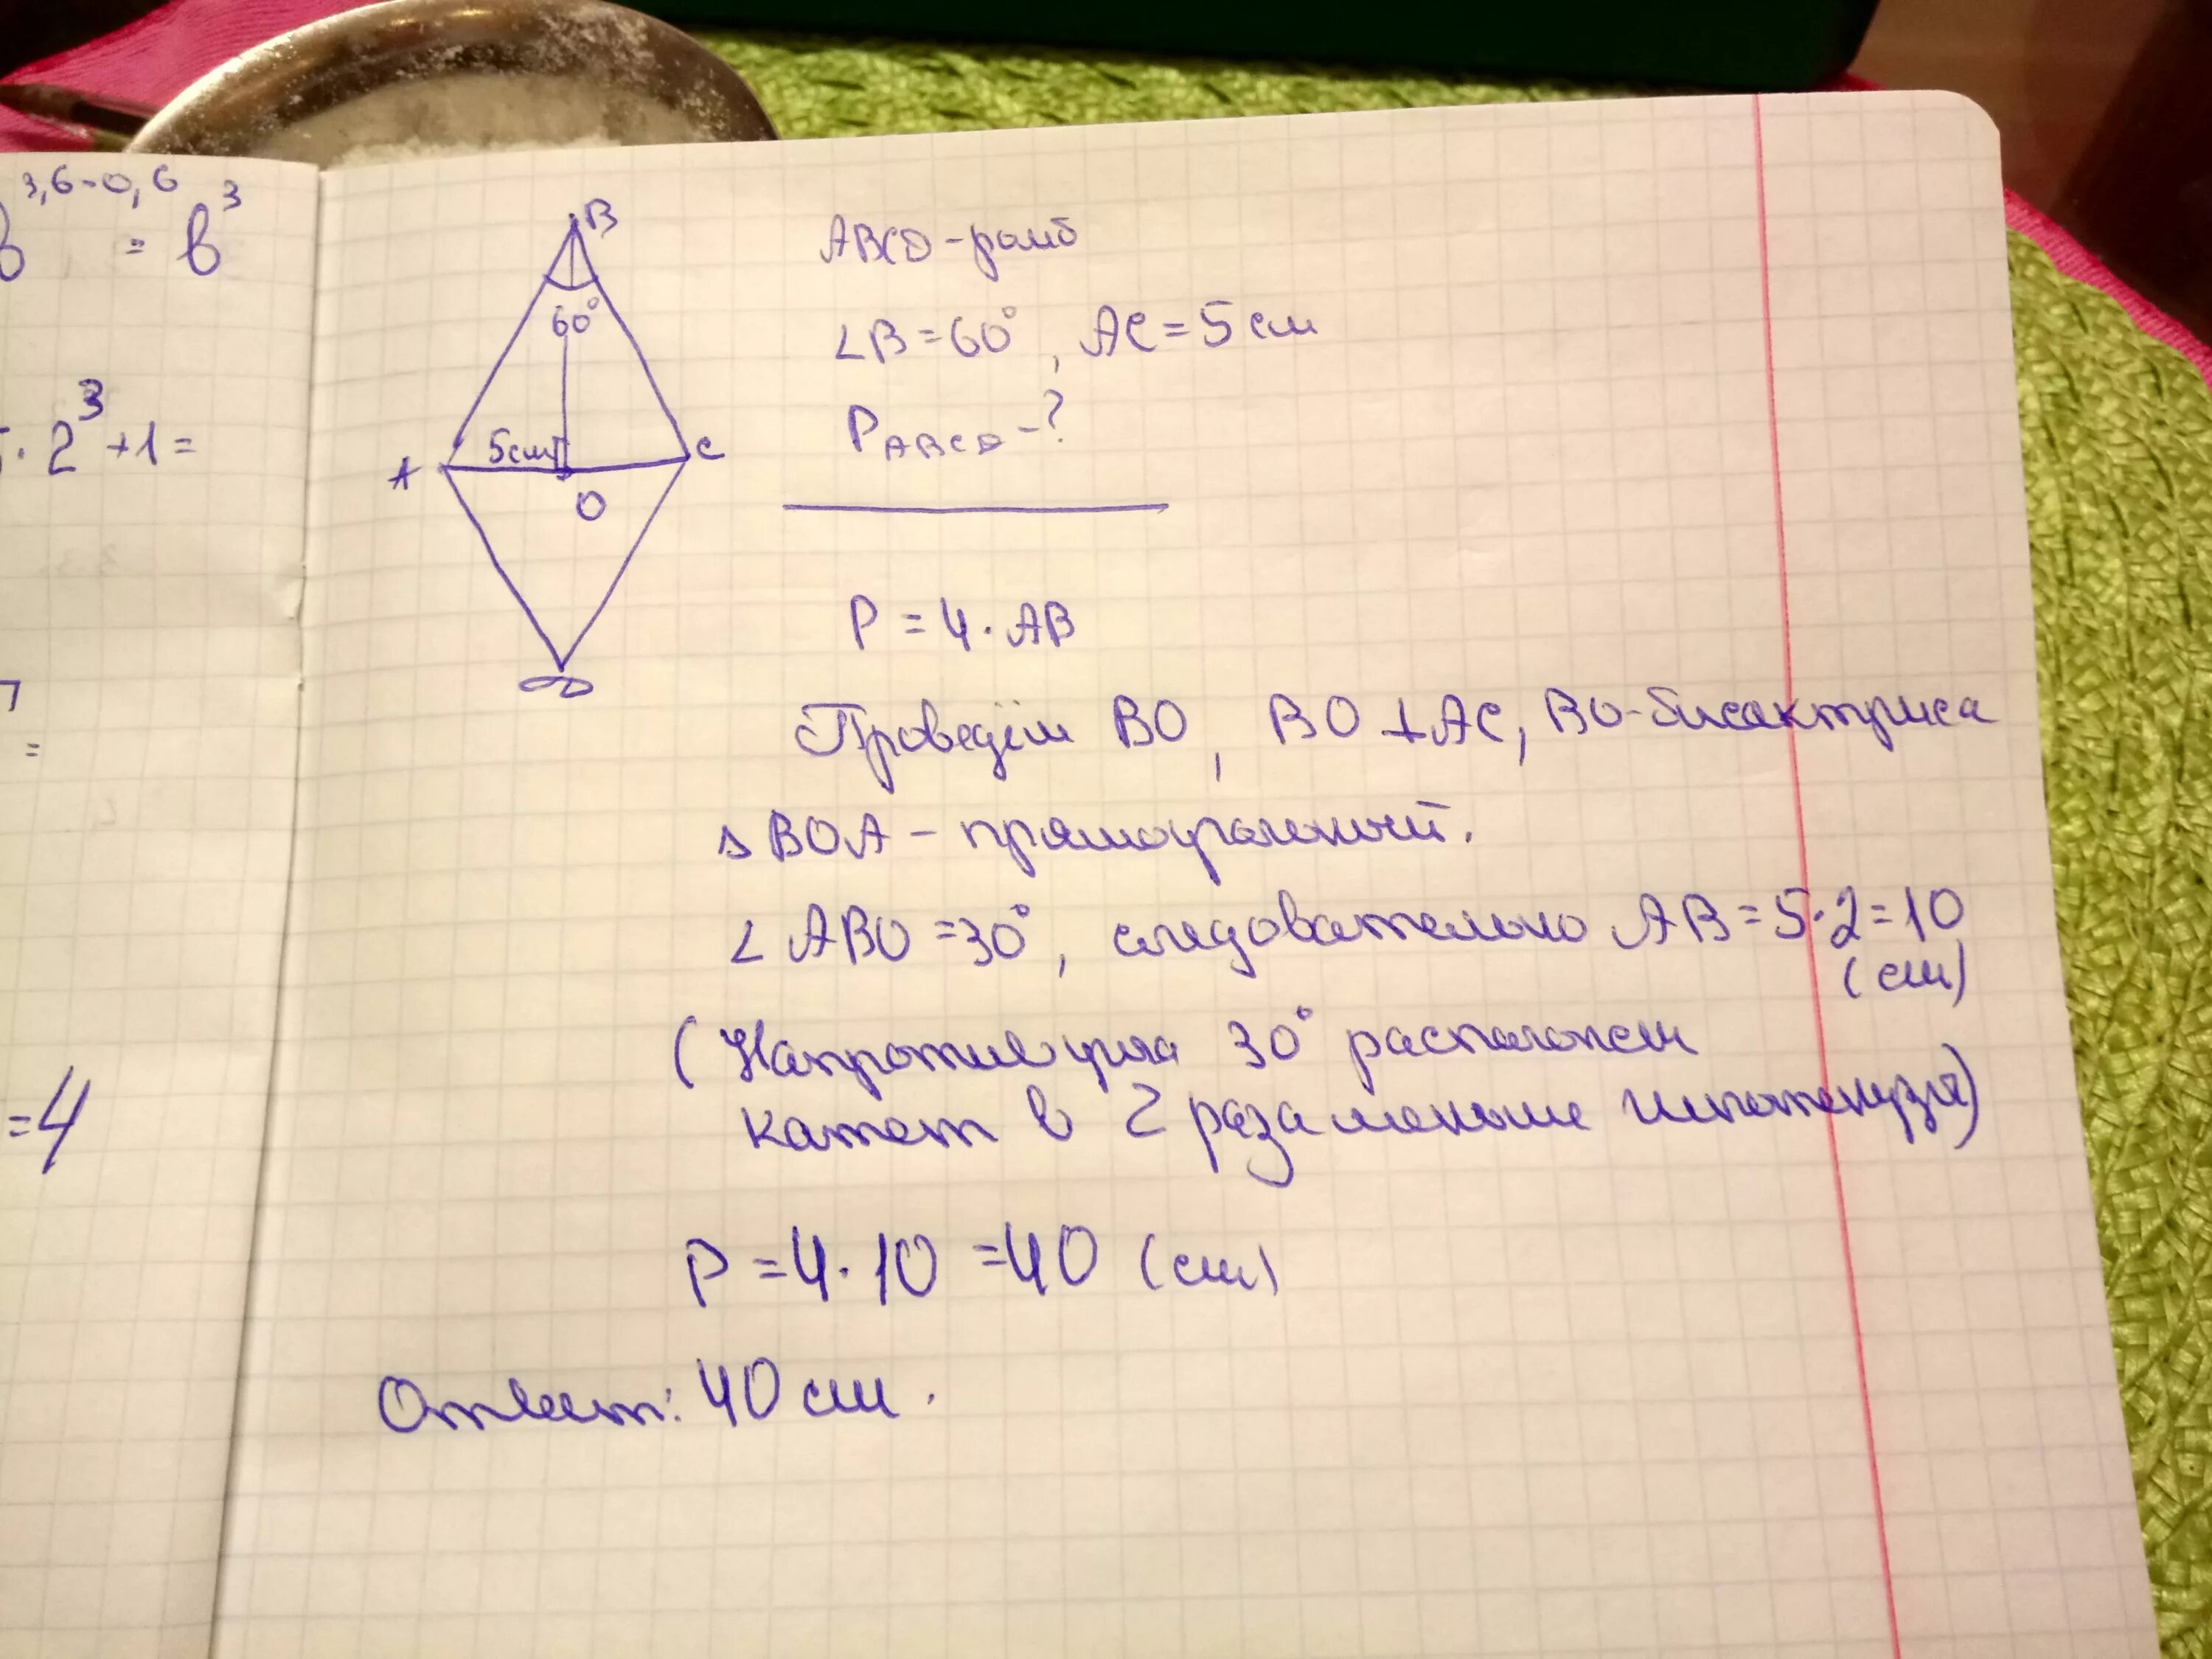 3,6-0,6
b = b³
· 2³ + 1 =
=
=4
B
60°
5см
A
C
O
D
ABCD - ромб
∠B = 60°, AC = 5 см
P ABCD - ?
P = 4 · AB
Проведём BO, BO ⊥ AC, BO - биссактриса
∆ BOA - прямоугольный.
∠ ABO = 30°, следовательно AB = 5·2 = 10
(см)
(Напротив угла 30° расположен
катет в 2 раза меньше гипотенузы)
P = 4 · 10 = 40 (см)
Ответ: 40 см.